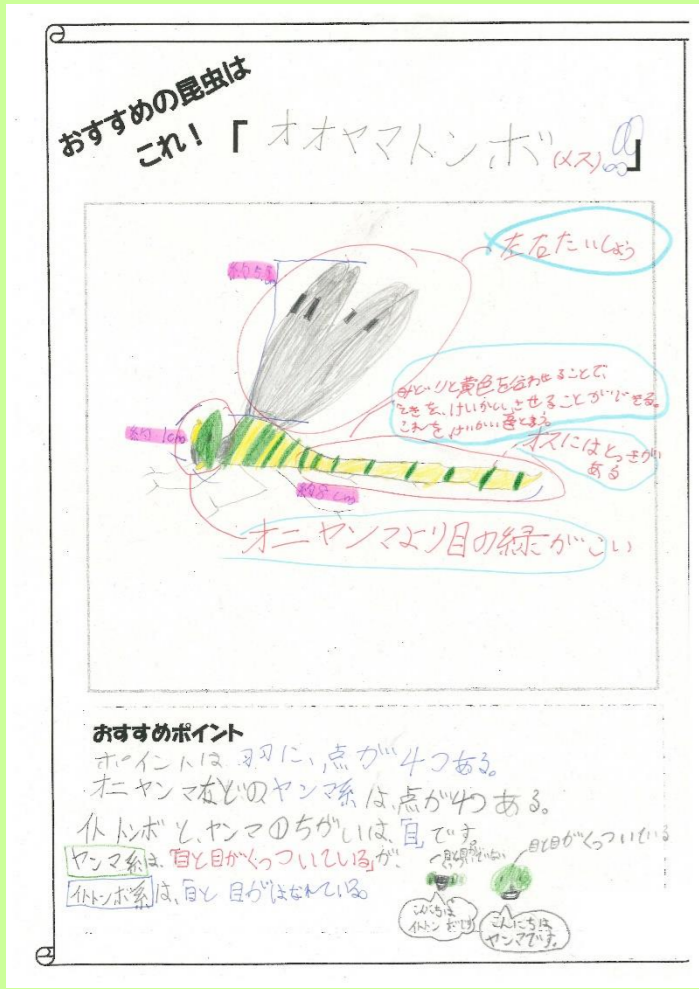 おすすめの昆虫は
これ！「オオヤマトンボ(メス)」
左右たいしょう
約5
みどりと黄色を合わせることで、
てきを、けいかいさせることができる。
これを、けいかい色と言う
オスにはとっきが
ある
約1cm
約8cm
オニヤンマより目の緑がこい
おすすめポイント
ポイントは羽に、点が4つある。
オニヤンマなどのヤンマ系は、点が4つある。
イトトンボと、ヤンマのちがいは、「目」です。
ヤンマ系は、「目と目がくっついている」が、
イトトンボ系は、目と目がはなれている。
目と目がくっついている
こんにちは
イトトンボです
こんにちは
ヤンマです。